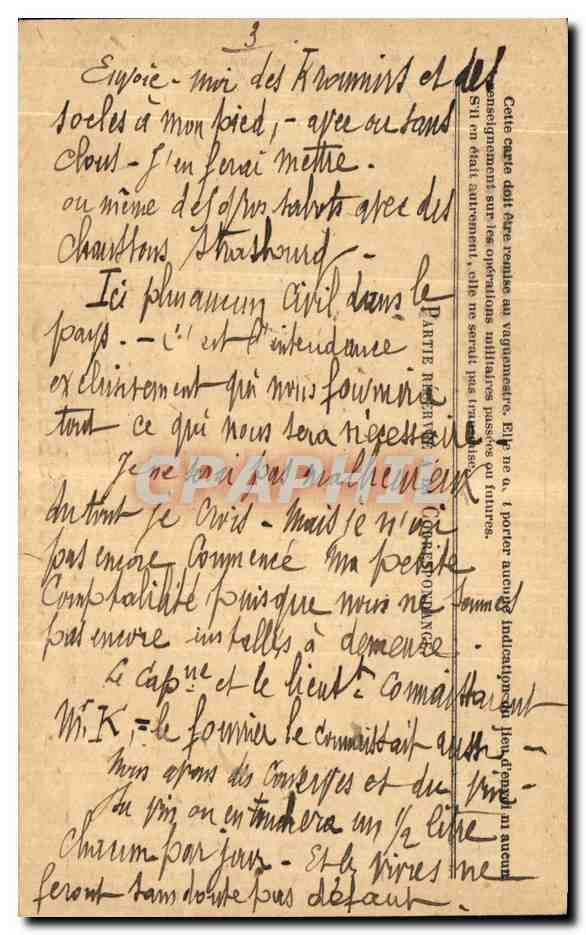 3
Envoie-moi des Kroumirs et des
socles à mon pied, - avec ou sans
clous - J'en ferai mettre.
ou même des gros sabots avec des
chaussons Strasbourg -
Ici plus aucun civil dans le
pays. - C'est l'intendance
exclusivement qui nous fournira
tout ce qui nous sera nécessaire.
Je ne serai pas malheureux
du tout je crois - Mais je n'ai
pas encore commencé ma petite
comptabilité puisque nous ne sommes
pas encore installés à demeure.
Le Capne et le lieutt connaissaient
Mr K, = le fourrier le connaissait aussi -
Nous avons des conserves et du vin -
Du vin on en touchera un 1/2 litre
chacun par jour - Et les vivres ne
feront sans doute pas défaut.
PARTIE RÉSERVÉE CORRESPONDANCE
Cette carte doit être remise au vaguemestre. Elle ne porter aucune indication du lieu d'envoi ni aucun
renseignement sur les opérations militaires passées ou futures.
S'il en était autrement, elle ne serait pas transmise.
CPAPHIL